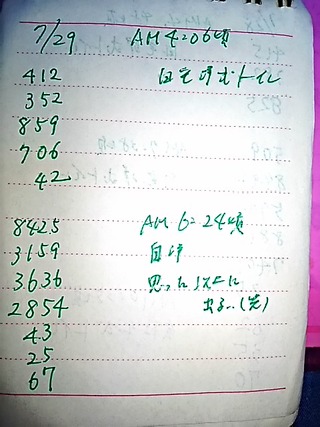 7/29 AM 4=06頃
412 自宅洋式トイレ
352
859
706
42
8425 AM 6=24頃
3159 自
3636 思った以上に
2854 出る‥(笑)
43
25
67